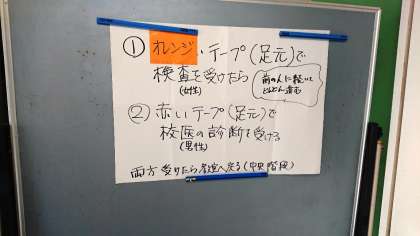 ① オレンジいテープ(足元)で
検査を受けたら
(女性)
前の人に続いて
どんどん進む
② 赤いテープ(足元)で
校医の診断を受ける
(男性)
両方受けたら教室へ戻る(中央階段)